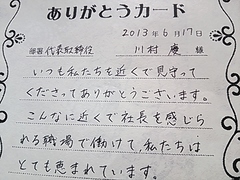 ありがとうカード
2013年6月17日
部署 代表取締役 川村 慶 様
いつも私たちを近くで見守って
くださってありがとうございます。
こんなに近くで社長を感じら
れる職場で働けて、私たちは
とても恵まれています。